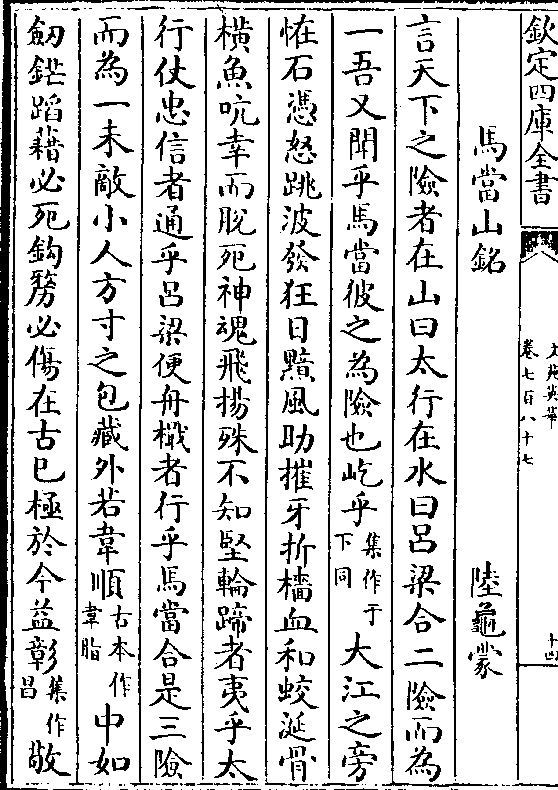 欽定四庫全書
文苑英華
卷七百八十七
十四
馬當山銘 陸龜蒙
言天下之險者在山曰太行在水曰呂梁合二險而為
一吾又聞乎馬當彼之為險也屹乎集作于下同大江之旁
怪石憑怒跳波發狂日黯風助摧牙折檣血和蛟涎骨
橫魚吭幸而脫死神魂飛揚殊不知堅輪蹄者夷乎太
行仗忠信者通乎呂梁便舟檝者行乎馬當合是三險
而為一未敵小人方寸之包藏外若韋順古本作韋脂中如
劒鋩蹈藉必死鈎𫝑必傷在古已極於今益彰集作昌敬